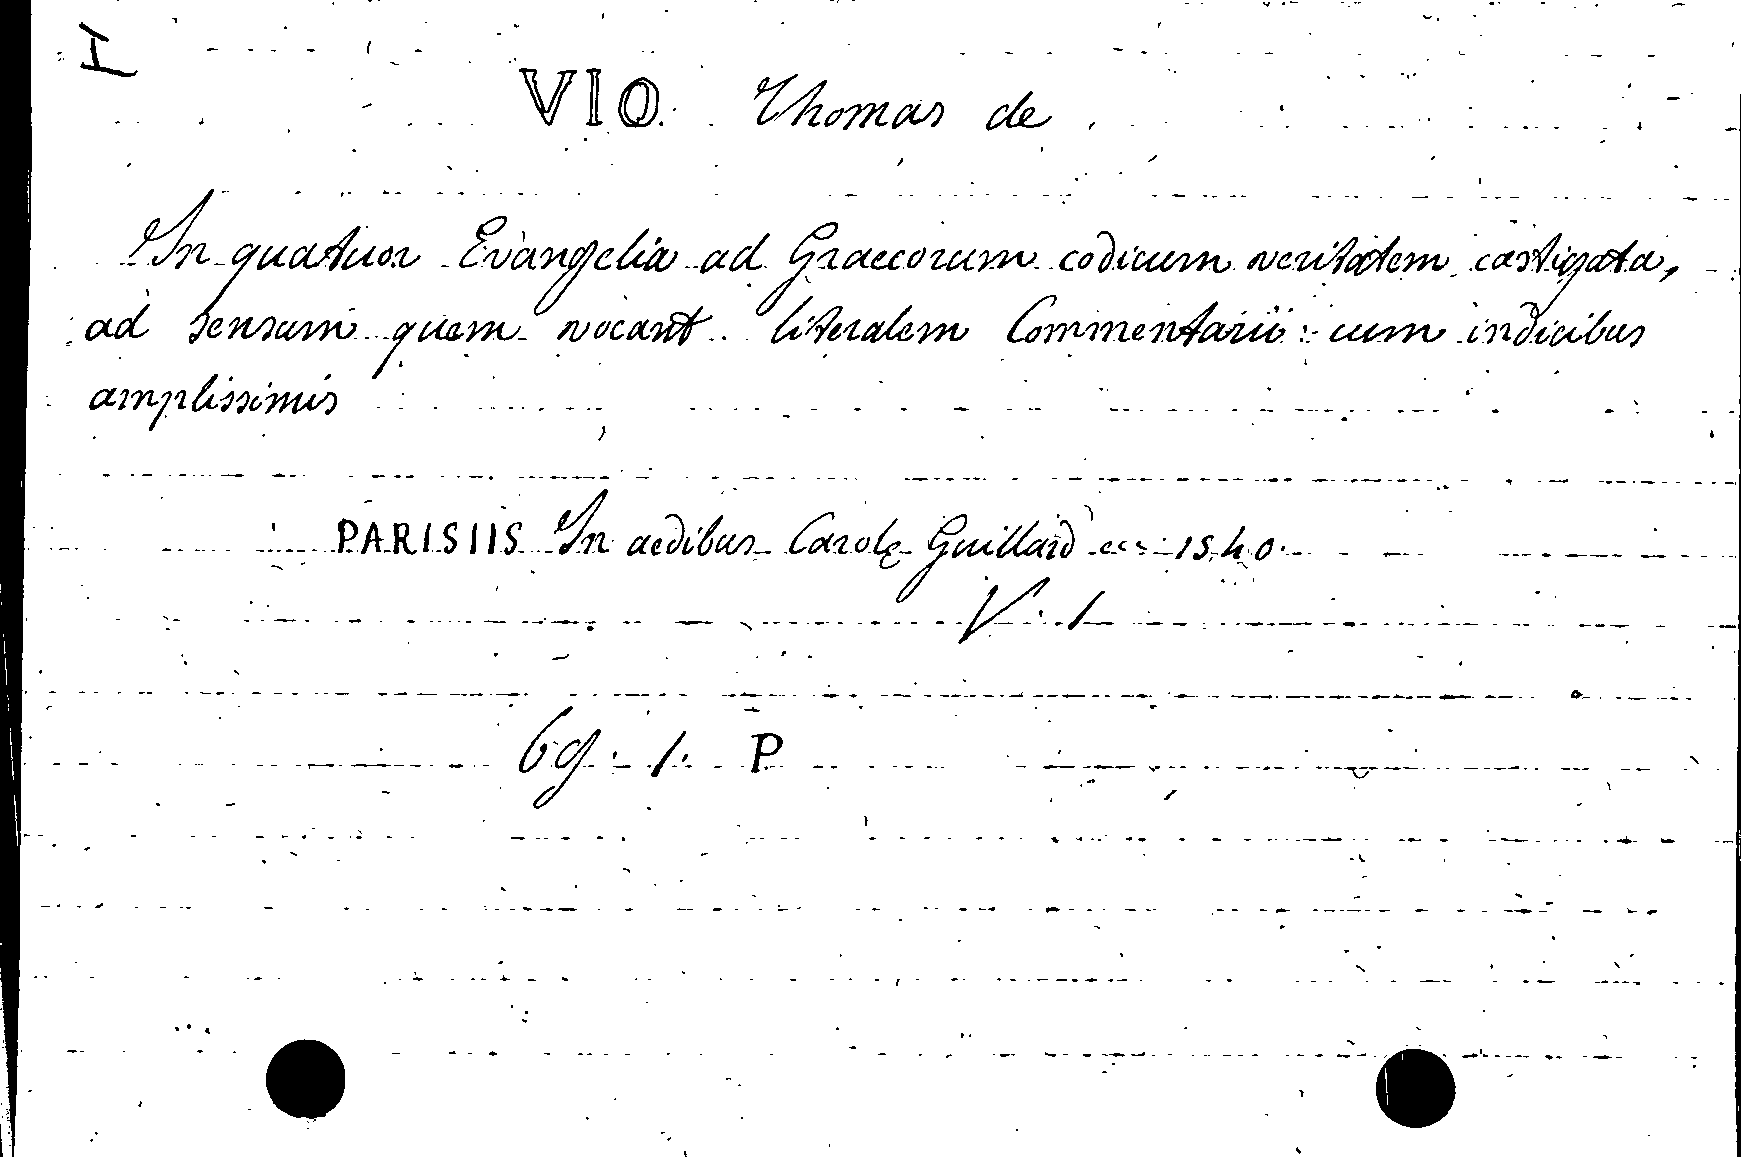 I
VIO. Thomas de
In quatuor Evangelia ad Graecorum codicum veritatem castigata,
ad sensum quem vocant literalem Commentarii: cum indicibus
amplissimis
PARISIIS In aedibus Carolę Guillard 1540.
V. 1
69. 1. P